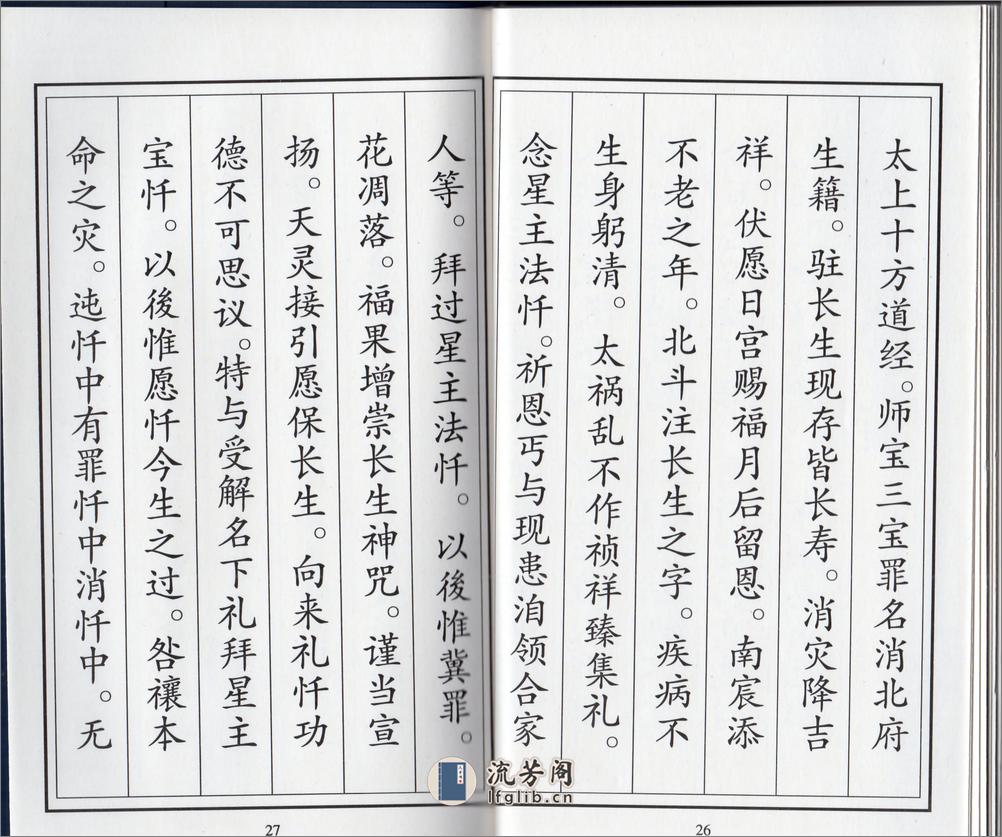 太上十方道经。师宝三宝罪名消北府
生籍。驻长生现存皆长寿。消灾降吉
祥。伏愿日宫赐福月后留恩。南宸添
不老之年。北斗注长生之字。疾病不
生身躬清。太祸乱不作祯祥臻集礼。
念星主法忏。祈恩丐与现患洎领合家
26
人等。拜过星主法忏。以後惟冀罪。
花凋落。福果增崇长生神咒。谨当宣
扬。天灵接引愿保长生。向来礼忏功
德不可思议。特与受解名下礼拜星主
宝忏。以後惟愿忏今生之过。咎禳本
命之灾。迍忏中有罪忏中消忏中。无
27
流芳阁
lfglib.cn